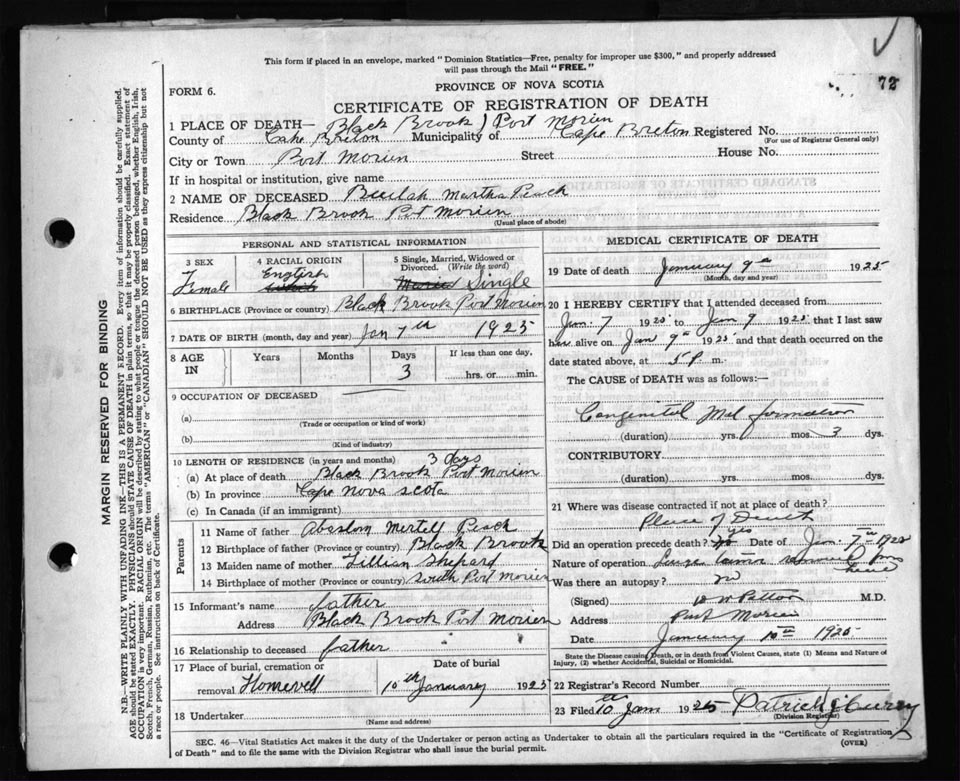 This form if placed in an envelope, marked "Dominion Statistics—Free, penalty for improper use $300," and properly addressed
will pass through the Mail "FREE."
PROVINCE OF NOVA SCOTIA
72
FORM 6.
CERTIFICATE OF REGISTRATION OF DEATH
1 PLACE OF DEATH— Black Brook Port Morien
County of Cape Breton Municipality of Cape Breton Registered No.
(For use of Registrar General only)
City or Town Port Morien Street House No.
If in hospital or institution, give name
2 NAME OF DECEASED Beulah Martha Peach
Residence Black Brook Port Morien
(Usual place of abode)
PERSONAL AND STATISTICAL INFORMATION
3 SEX
Female
4 RACIAL ORIGIN
English
5 Single, Married, Widowed or
Divorced. (Write the word)
Single
6 BIRTHPLACE (Province or country) Black Brook Port Morien
7 DATE OF BIRTH (month, day and year) Jan 7th 1925
8 AGE IN
Years Months Days If less than one day,
3 hrs. or min.
9 OCCUPATION OF DECEASED
(a)
(Trade or occupation or kind of work)
(b)
(Kind of industry)
10 LENGTH OF RESIDENCE (in years and months) 3 days
(a) At place of death Black Brook Port Morien
(b) In province Cape Nova Scota
(c) In Canada (if an immigrant)
Parents
11 Name of father Absalom Mertell Peach
12 Birthplace of father (Province or country) Black Brook
13 Maiden name of mother Lillian Shepard
14 Birthplace of mother (Province or country) South Port Morien
15 Informant's name father
Address Black Brook Port Morien
16 Relationship to deceased father
17 Place of burial, cremation or
removal Homevell
Date of burial
10th January 1925
18 Undertaker
(Name and address)
MEDICAL CERTIFICATE OF DEATH
19 Date of death January 9th 1925
(Month, day and year)
20 I HEREBY CERTIFY that I attended deceased from
Jan 7 1925 to Jan 9 1925 that I last saw
her alive on Jan 9th 1925 and that death occurred on the
date stated above, at 5 P m.
The CAUSE of DEATH was as follows:—
Congenital Mal formation
(duration) yrs. mos. 3 dys.
CONTRIBUTORY
(duration) yrs. mos. dys.
21 Where was disease contracted if not at place of death?
Place of Death
Did an operation precede death? yes Date of Jan 7th 1925
Nature of operation Large tumor removed from
Was there an autopsy? no
(Signed) M.D.
Address Port Morien
Date January 10th 1925
State the Disease causing Death, or in death from Violent Causes, state (1) Means and Nature of
Injury, (2) whether Accidental, Suicidal or Homicidal.
22 Registrar's Record Number
23 Filed 10th Jan 1925 Patrick J Curry
(Division Registrar)
SEC. 46—Vital Statistics Act makes it the duty of the Undertaker or person acting as Undertaker to obtain all the particulars required in the "Certificate of Registration
of Death" and to file the same with the Division Registrar who shall issue the burial permit.
(OVER)
MARGIN RESERVED FOR BINDING
N.B.—WRITE PLAINLY WITH UNFADING INK—THIS IS A PERMANENT RECORD. Every item of information should be carefully supplied.
AGE should be stated EXACTLY. PHYSICIANS should STATE CAUSE OF DEATH in plain terms, so that it may be properly classified. Exact statement of
OCCUPATION is very important. RACIAL ORIGIN will be described by stating to what people or tongue the deceased person belonged, whether English, Irish,
Scotch, French, German, Russian, Ruthenian, etc. The terms "AMERICAN" or "CANADIAN" SHOULD NOT BE USED as they express citizenship but not
a race or people. See instructions on back of Certificate.